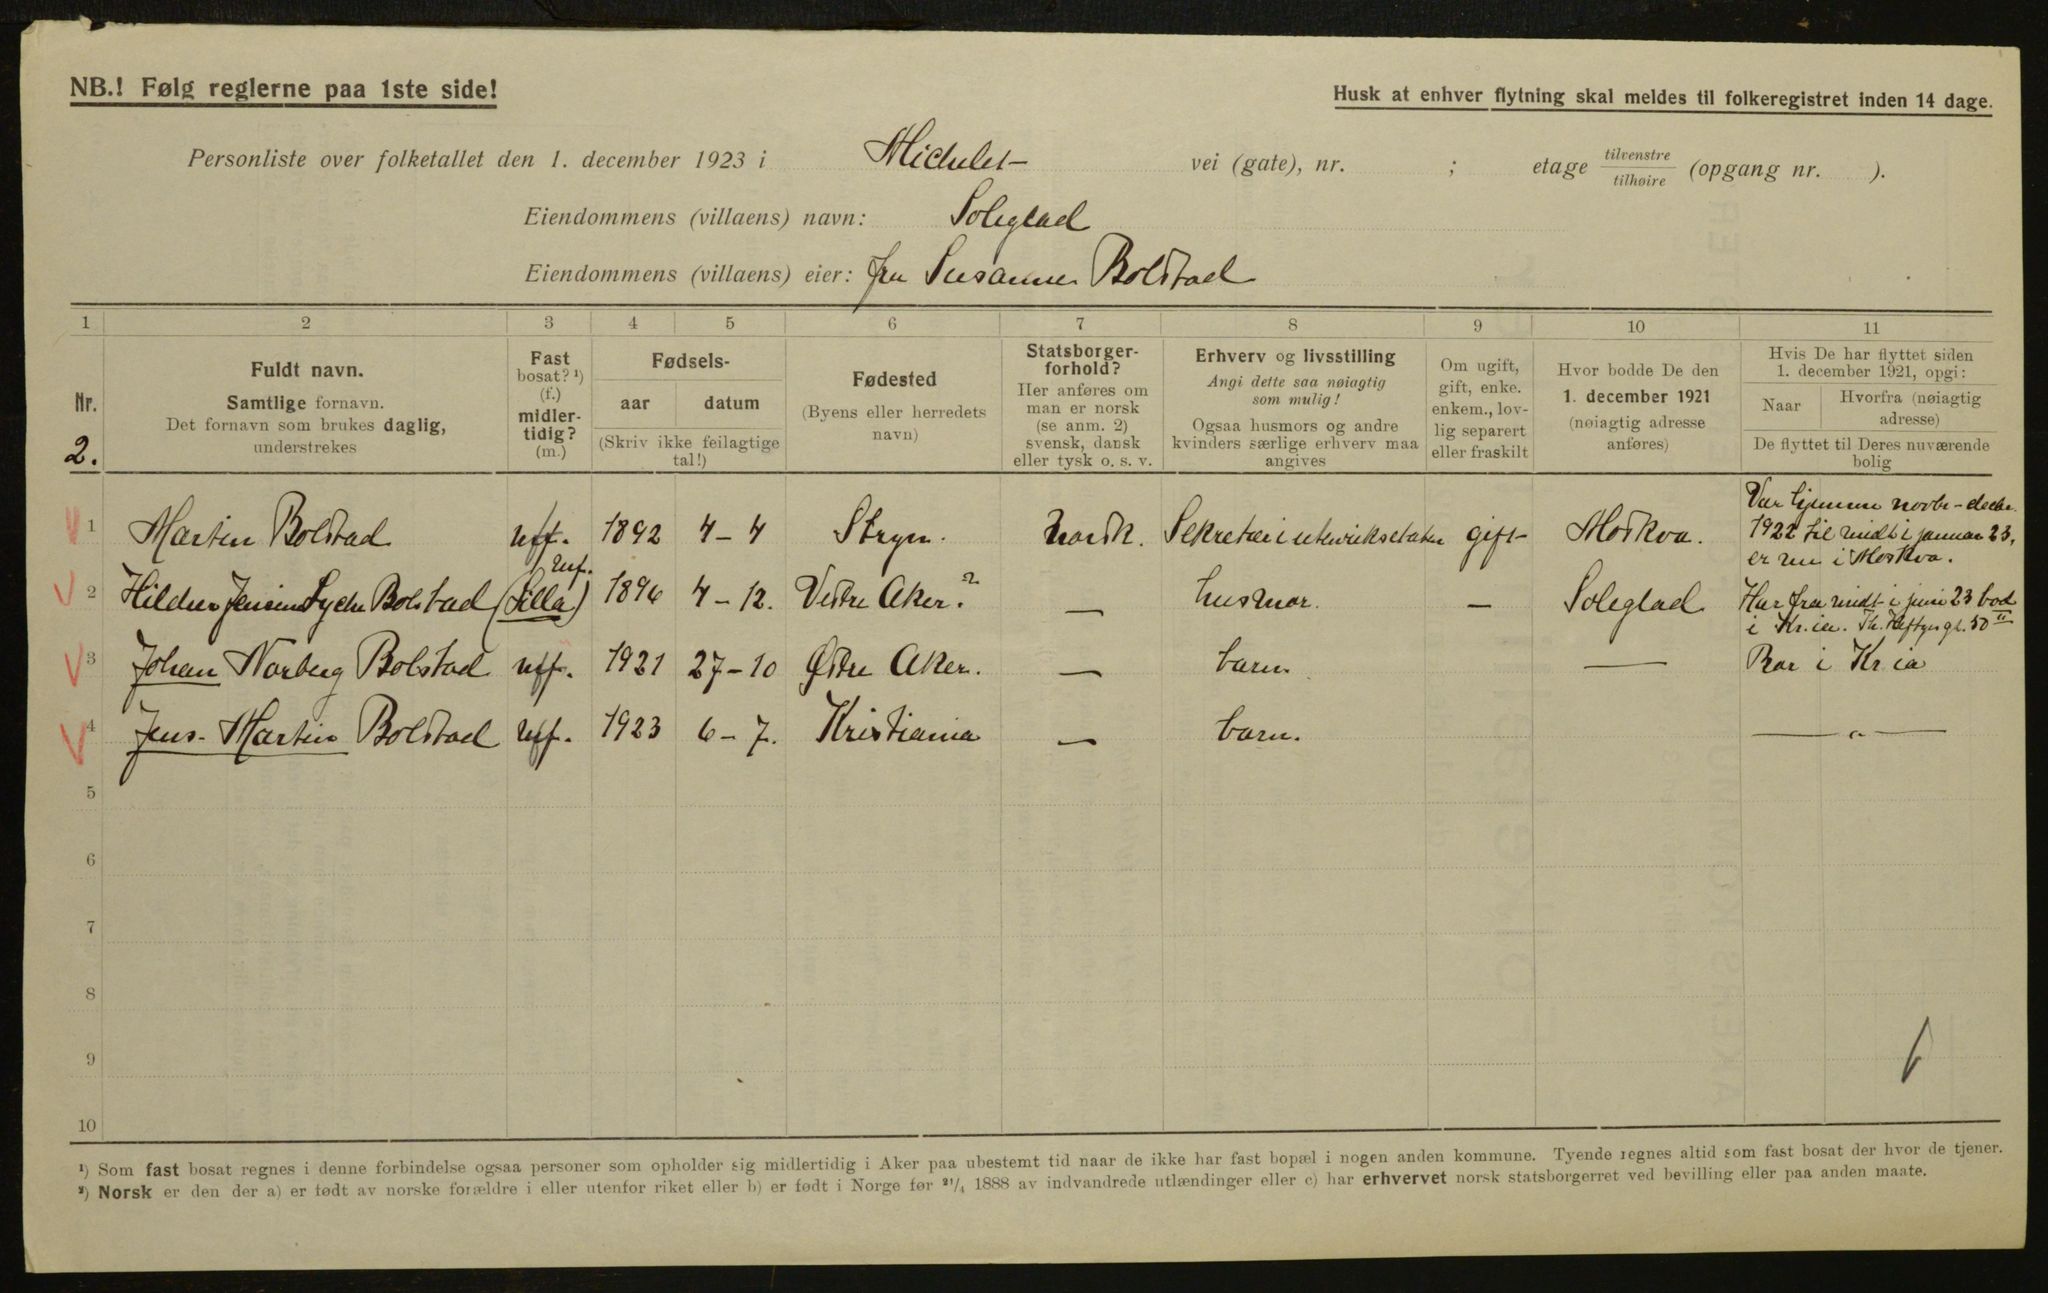 NB.! Følg reglerne paa 1ste side!
Husk at enhver flytning skal meldes til folkeregistret inden 14 dage.
Personliste over folketallet den 1. december 1923 i Michelet- vei (gate), nr. ; etage tilvenstre/tilhøire (opgang nr. ).
Eiendommens (villaens) navn: Soleglad
Eiendommens (villaens) eier: fru Susanne Bolstad
1 2 3 4 5 6 7 8 9 10 11
Nr.
2.
Fuldt navn.
Samtlige fornavn.
Det fornavn som brukes daglig,
understrekes
Fast
bosat? ¹)
(f.)
midler-
tidig?
(m.)
Fødsels-
aar datum
(Skriv ikke feilagtige
tal!)
Fødested
(Byens eller herredets
navn)
Statsborger-
forhold?
Her anføres om
man er norsk
(se anm. 2)
svensk, dansk
eller tysk o. s. v.
Erhverv og livsstilling
Angi dette saa nøiagtig
som mulig!
Ogsaa husmors og andre
kvinders særlige erhverv maa
angives
Om ugift,
gift, enke.
enkem., lov-
lig separert
eller fraskilt
Hvor bodde De den
1. december 1921
(nøiagtig adresse
anføres)
Hvis De har flyttet siden
1. december 1921, opgi:
Naar Hvorfra (nøiagtig
adresse)
De flyttet til Deres nuværende
bolig
1 Martin Bolstad 1892 4-4 Stryn. norsk. Sekretær i utenriksetaten gift Moskva. Var hjemme novbr-decbr.
1922 til midt i januar 23,
er nu i Moskva.
2 Jensen Bolstad (Lilla) 1896 4-12. Vestre Aker. — husmor. — Soleglad Har fra midt i juni 23 bod
i Kr.ia. Th. Heftyes gt. 50 II
3 Johan Norberg Bolstad 1921 27-10 Østre Aker. — barn. — Bor i Kr ia
4 Jens-Martin Bolstad 1923 6-7. Kristiania — barn. — " —
5
6
7
8
9
10
¹) Som fast bosat regnes i denne forbindelse ogsaa personer som opholder sig midlertidig i Aker paa ubestemt tid naar de ikke har fast bopæl i nogen anden kommune. Tyende regnes altid som fast bosat der hvor de tjener.
²) Norsk er den der a) er født av norske forældre i eller utenfor riket eller b) er født i Norge før ²¹/₄ 1888 av indvandrede utlændinger eller c) har erhvervet norsk statsborgerret ved bevilling eller paa anden maate.